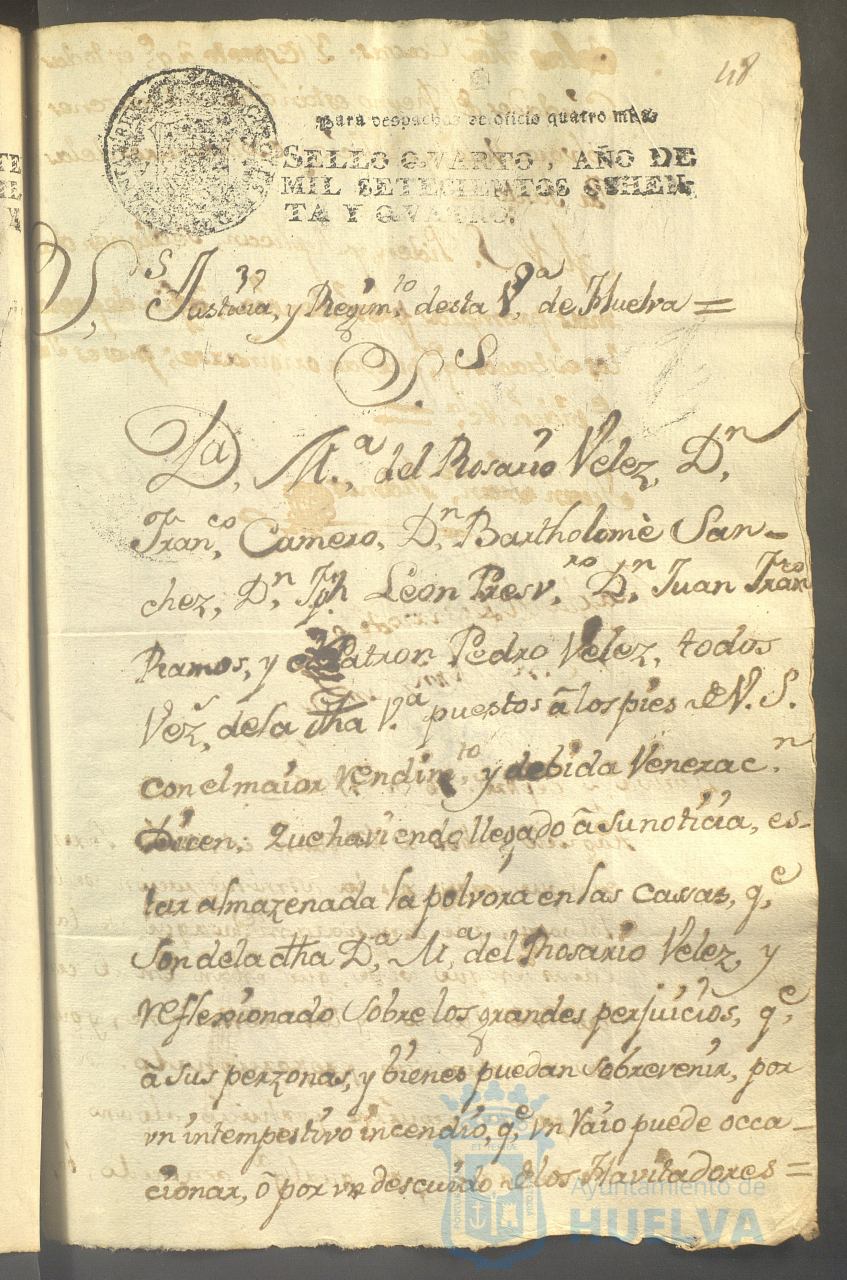 48
Para despachos de oficio quatro mrs
SELLO QVARTO, AÑO DE
MIL SETECIENTOS OSHEN-
TA Y QVATRO.
S. Ss Justicia, y Regim.to desta V.a de Huelva =
S. S
Da. M.a del Rosario Velez, Dn.
Fran.co Camero, Dn. Bartholomè San-
chez, Dn. Jph Leon Presv.ro Dn. Juan Fran.co
Ramos, y el Patron Pedro Velez, todos
Vez.s de la dha V.a puestos â los pies de V. S.
con el maior rendim.to y debida Venerac.n
Dicen, Que haviendo llegado â su noticia, es-
tar almazenada la polvora en las casas, q.e
son de la dha D.a M.a del Rosario Velez, y
reflexionado sobre los grandes perjuicios, q.e
â sus perzonas, y bienes puedan sobrevenir, por
vn intempestivo incendio, q.e vn Raio puede occa-
cionar, ô por vn descuido de los Havitadores =
Ayuntamiento de
HUELVA